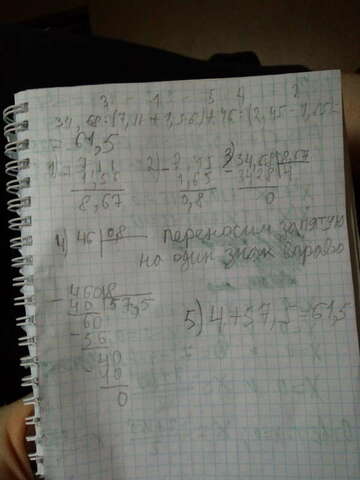 3 1 5 4 2
34,68:(7,11+1,56)+46:(2,45-1,65)=
=61,5
1) 7,11
1,56
8,67
2) - 2,45
1,65
0,8
3) - 34,68 | 8,67
34,68 | 4
0
4) 46 | 0,8
переносим запятую
на один знак вправо
- 460 | 8
40 | 57,5
60
- 56
40
40
0
5) 4+57,5=61,5